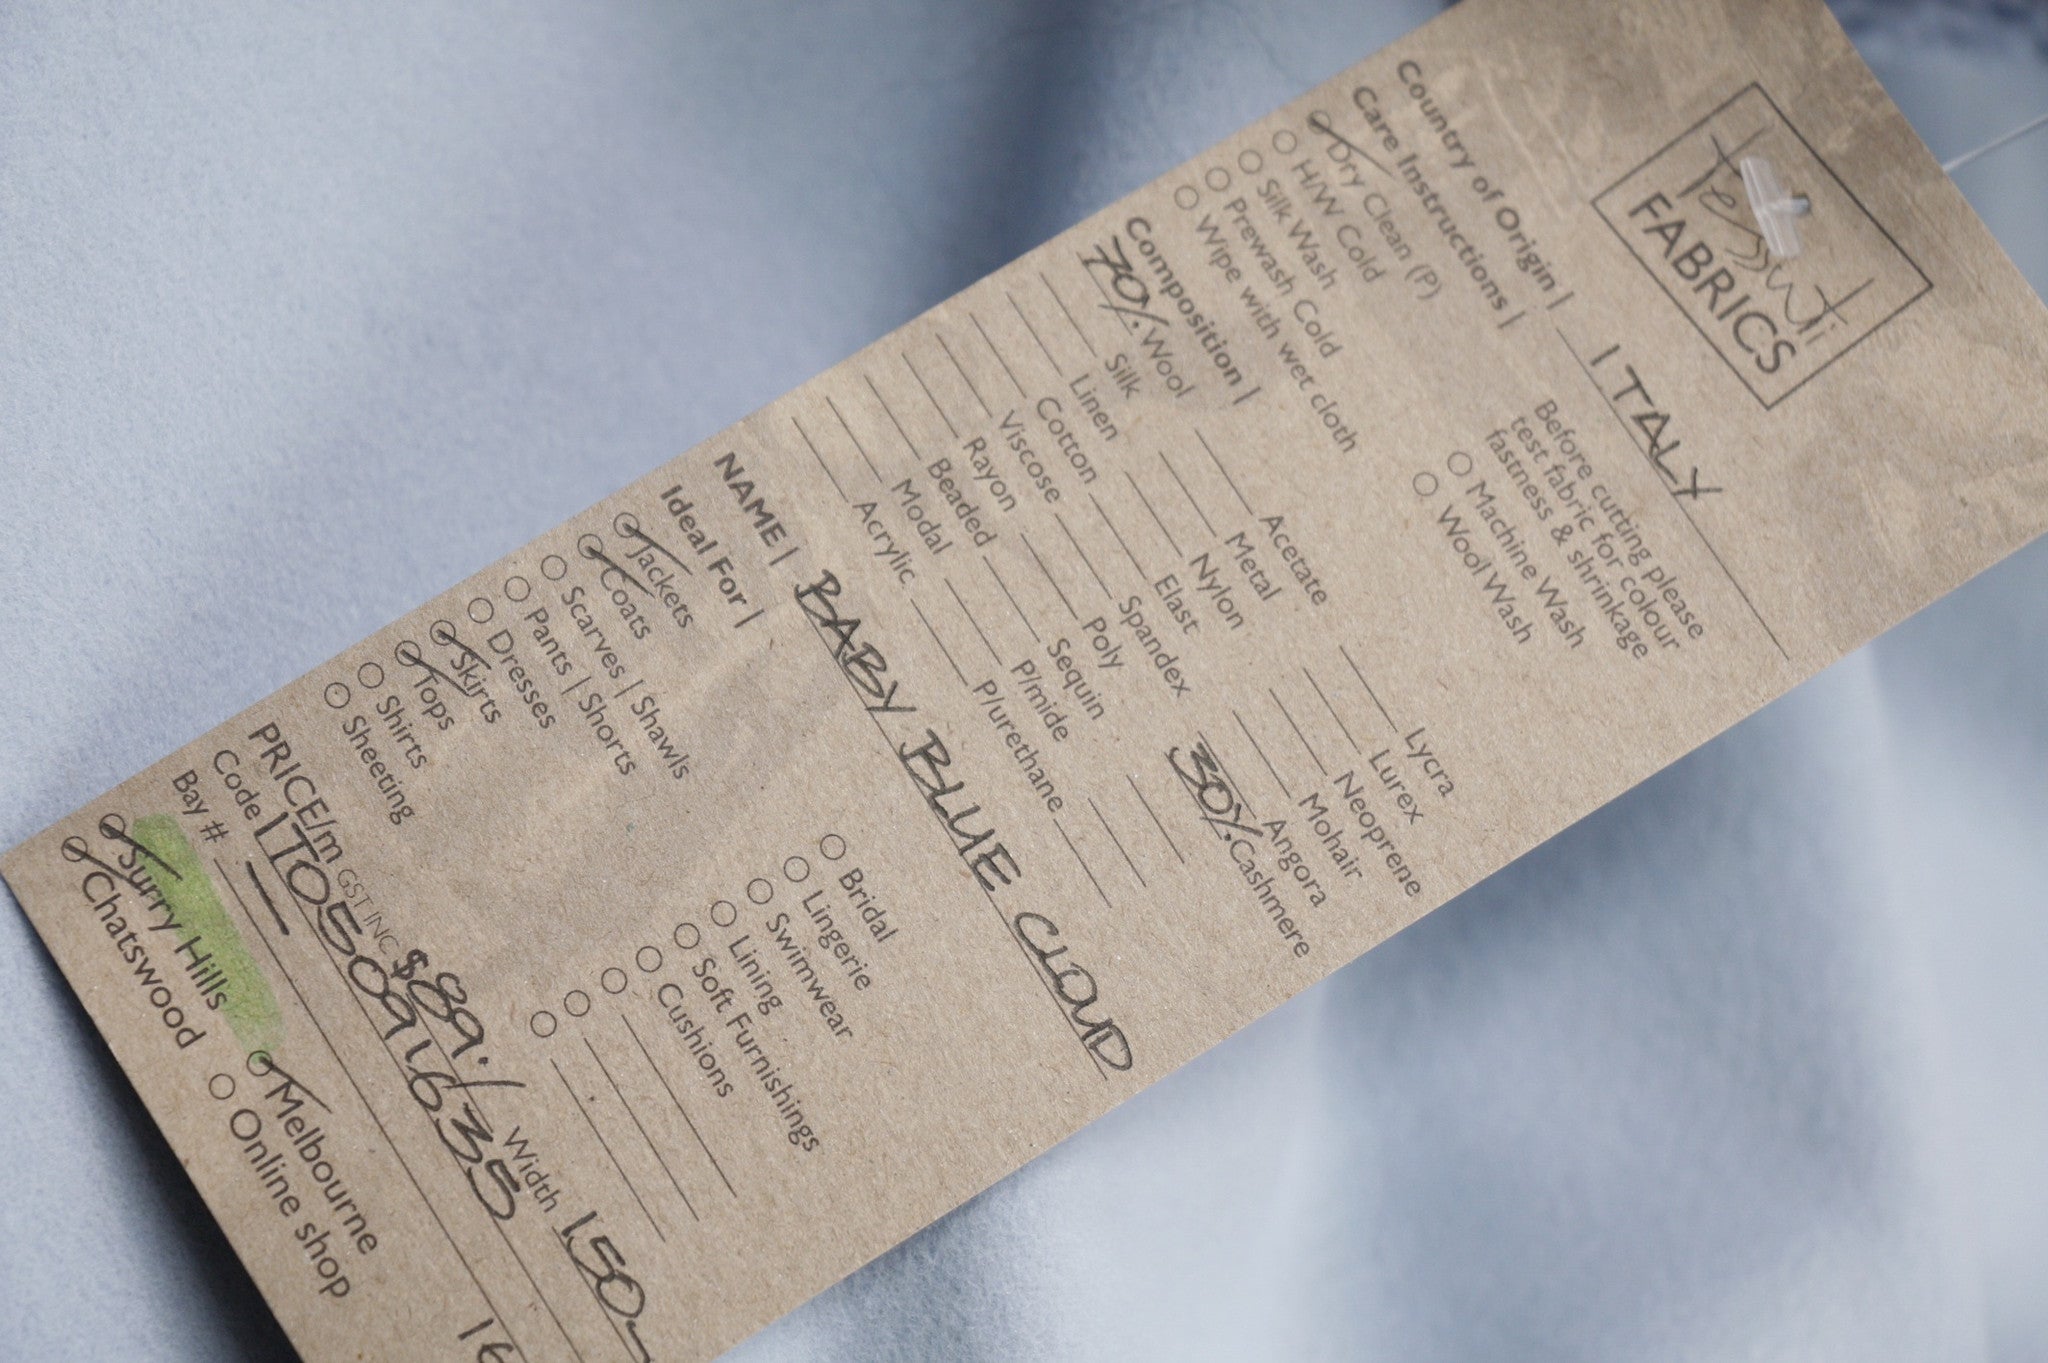 Tessuti
FABRICS
Country of Origin | ITALY
Care Instructions |
Dry Clean (P)
H/W Cold
Silk Wash
Prewash Cold
Wipe with wet cloth
Before cutting please
test fabric for colour
fastness & shrinkage
Machine Wash
Wool Wash
Composition |
70% Wool
Silk
Linen
Cotton
Viscose
Rayon
Beaded
Modal
Acrylic
Acetate
Metal
Nylon
Elast
Spandex
Poly
Sequin
P/mide
P/urethane
Lycra
Lurex
Neoprene
Mohair
Angora
30% Cashmere
NAME | BABY BLUE CLOUD
Ideal For |
Jackets
Coats
Scarves | Shawls
Pants | Shorts
Dresses
Skirts
Tops
Shirts
Sheeting
Bridal
Lingerie
Swimwear
Lining
Soft Furnishings
Cushions
PRICE/m GST INC $89./ Width 150
Code LT05091635
Bay # — 16
Surry Hills
Chatswood
Melbourne
Online shop